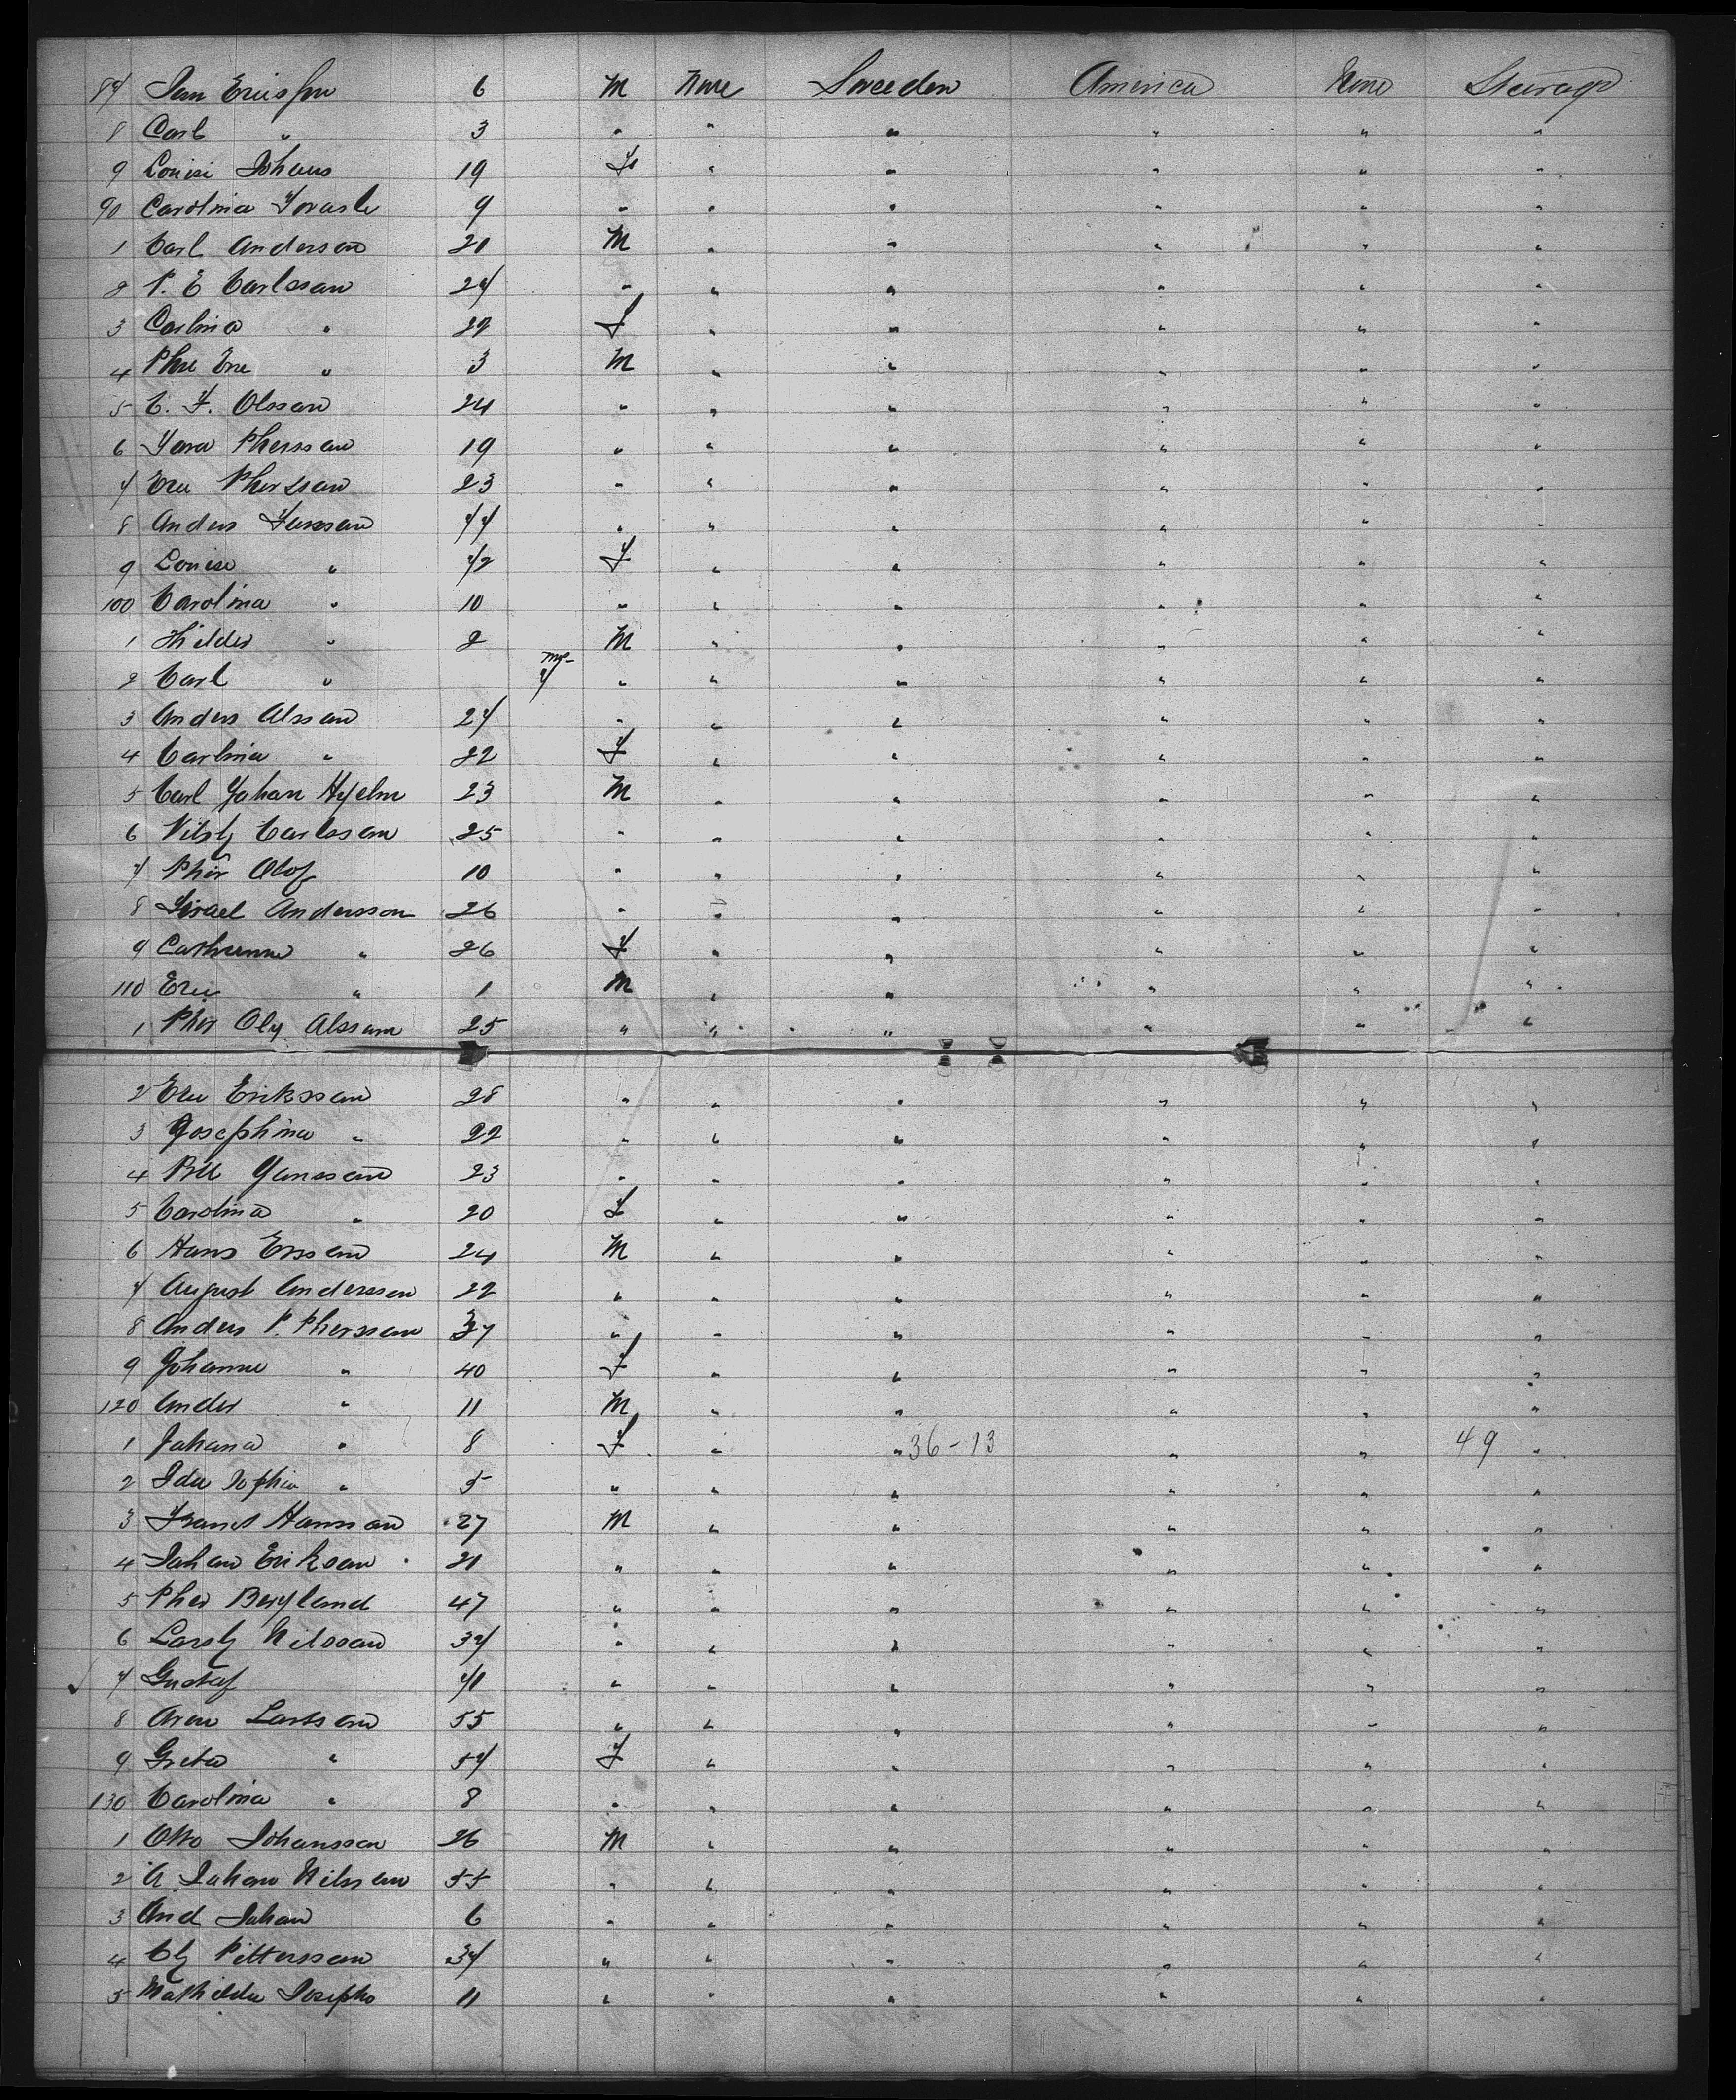 87 Jan Ericsson 6 M None Sweeden America None Steerage
8 Carl " 3 " " " " " "
9 Louisi Johans 19 F " " " " "
90 Carolina 9 " " " " " "
1 Carl Anderson 20 M " " " " "
2 P. E Carlssan 27 " " " " " "
3 Carlina " 22 F " " " " "
4 Phre Ere " 3 M " " " " "
5 C. F. Olssan 24 " " " " " "
6 Phersson 19 " " " " " "
7 Eric Pherssan 23 " " " " " "
8 Anders 44 " " " " " "
9 Louise " 42 F " " " " "
100 Carolina " 10 " " " " " "
1 Hilder " 2 M " " " " "
2 Carl " mo 7 " " " " " "
3 Anders Alssan 27 " " " " " "
4 Carlina " 22 F " " " " "
5 Carl Johan Hyelm 23 M " " " " "
6 Carlssan 25 " " " " " "
7 Pher Olof 10 " " " " " "
8 Israel Andersson 26 " " " " " "
9 Cathrenne " 26 F " " " " "
110 Eric " 1 M " " " " "
1 Pher Oly Alssam 25 " " " " " "
2 Eric Erikssan 28 " " " " " "
3 Josephina " 22 " " " " " "
4 Yanssan 23 " " " " " "
5 Carolina " 20 F " " " " "
6 Hans Erssan 24 M " " " " "
7 August Anderssan 22 " " " " " "
8 Anders P. Pherssan 37 " " " " " "
9 Johanne " 40 F " " " " "
120 Ander " 11 M " " " " "
1 Johana " 8 F " " 36-13 " " 49 "
2 Ida Sophia " 5 " " " " " "
3 Franst Hanssan 27 M " " " " "
4 Johan Eriksan 21 " " " " " "
5 Pher Bergland 47 " " " " " "
6 Nilssan 37 " " " " " "
7 Gustaf 41 " " " " " "
8 Larssan 55 " " " " " "
9 Greta " 57 F " " " " "
130 Carolina " 8 " " " " " "
1 Otto Johanssan 26 M " " " " "
2 A. Johan Nilssan 55 " " " " " "
3 And Johan 6 " " " " " "
4 Pitterssan 37 " " " " " "
5 Mathilda Josepho 11 " " " " " "